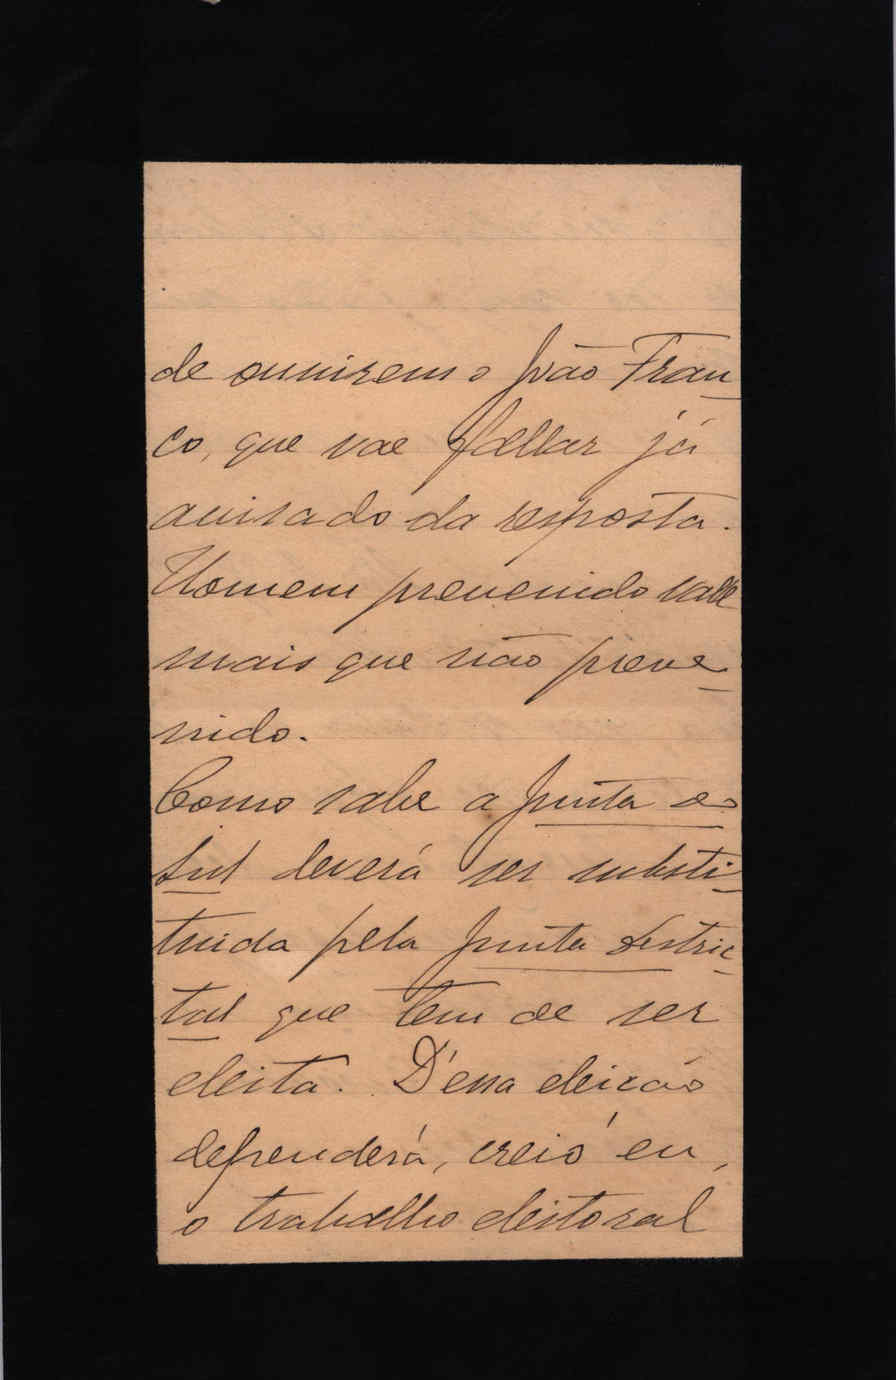 de ouvirem o João Fran-
co, que vae fallar já
avisado da resposta.
Homem prevenido valle
mais que não preve-
nido.
Como sabe a Junta do
Sul deverá ser substi-
tuida pela Junta Destric-
tal que tem de ser
eleita. D'essa eleição
dependerá, creio eu,
o trabalho eleitoral